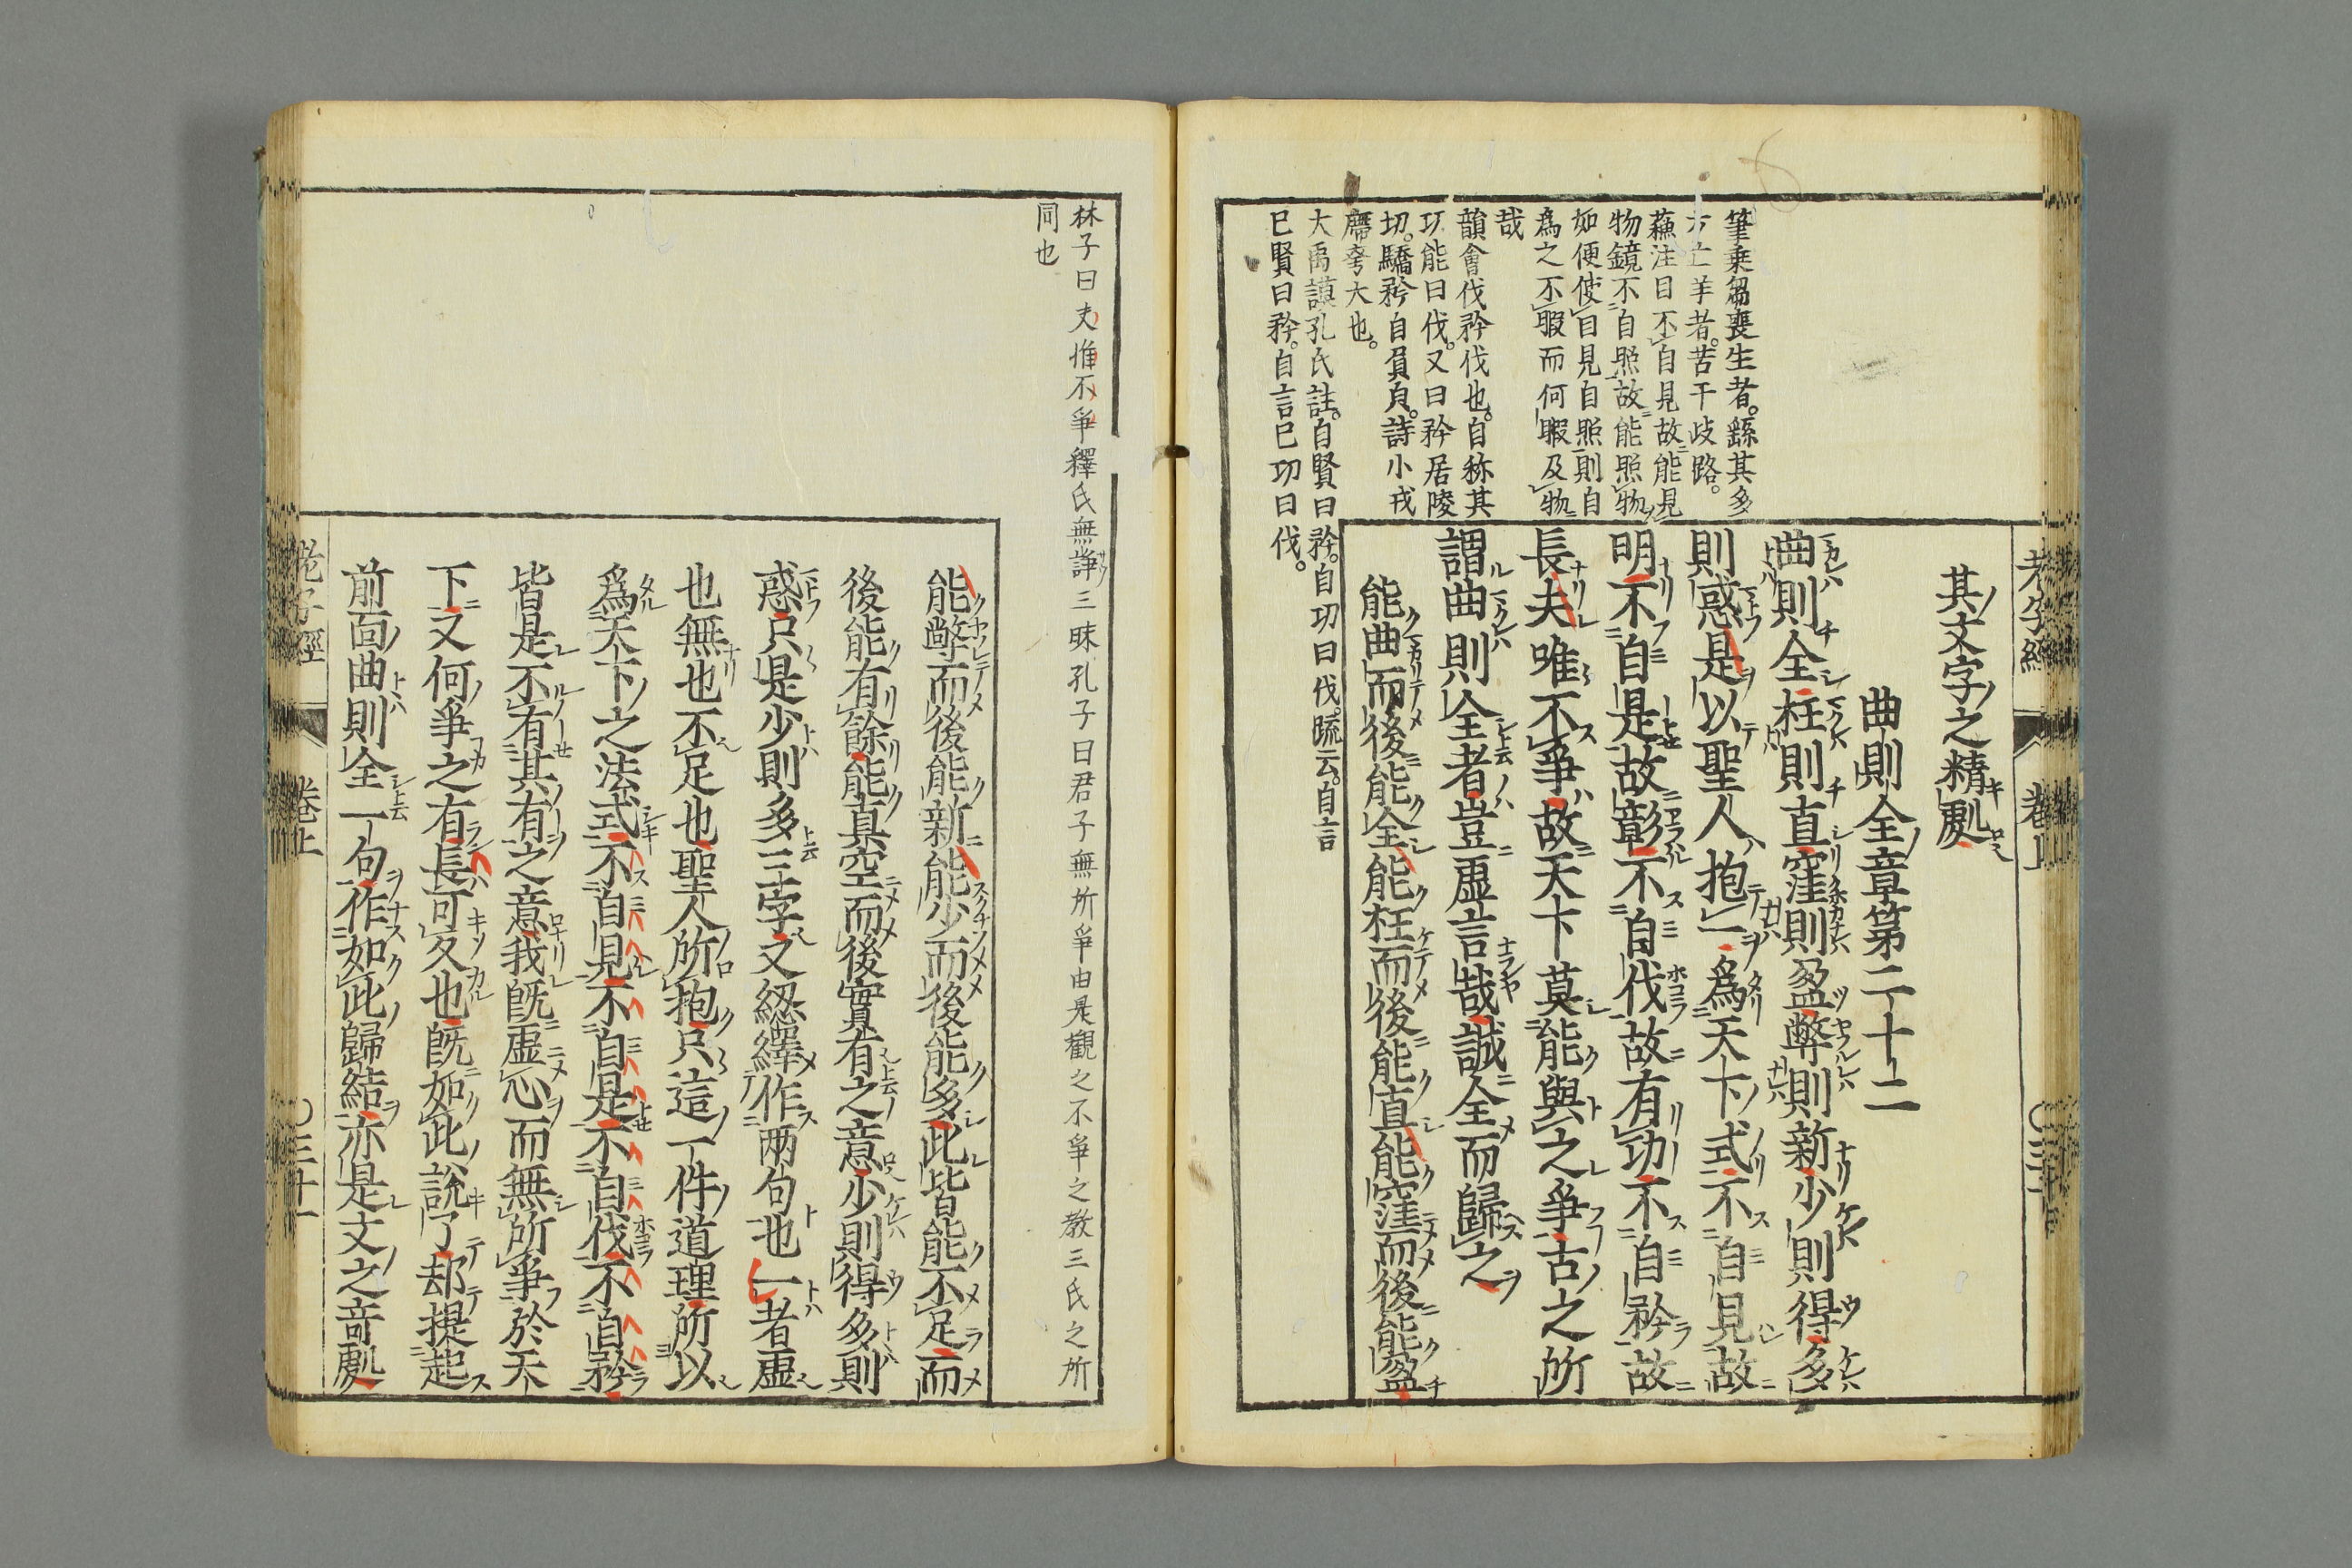 老子經 卷上
筆乗芻喪生者。繇其多
亡羊者。苦千岐路。
蘓注曰不自見故能見
物鏡不自照故能照物
如便使自見自照則自
為之不暇而何暇及物
哉
韻會伐矜伐也。自称其
功能曰伐。又曰矜居陵
切。驕矜自負皃。詩小戎
膺夸大也。
大禹謨孔氏註。自賢曰矜。自功曰伐。疏云。自言
已賢曰矜。自言已功曰伐。
其文字之精處
曲則全章第二十二
曲則全枉則直窪則盈弊則新少則得多
則惑是以聖人抱一為天下式不自見故
明不自是故彰不自伐故有功不自矜故
長夫唯不爭故天下莫能與之爭古之所
謂曲則全者豈虛言哉誠全而歸之
能曲而後能全能枉而後能直能窪而後能盈
林子曰夫惟不爭釋氏無諍三昧孔子曰君子無所爭由是觀之不爭之教三氏之所
同也
能弊而後能新能少而後能多此皆能不足而
後能有餘能真空而後實有之意少則得多則
惑只是少則多三字又總繹作兩句也一者虛
也無也不足也聖人所抱只這一件道理所以
為天下之法式不自見不自是不自伐不自矜
皆是不有其有之意我既虛心而無所爭於天
下又何爭之有長可久也既如此說了却提起
前面曲則全一句作如此歸結亦是文之竒處
老子經 卷上 三十一